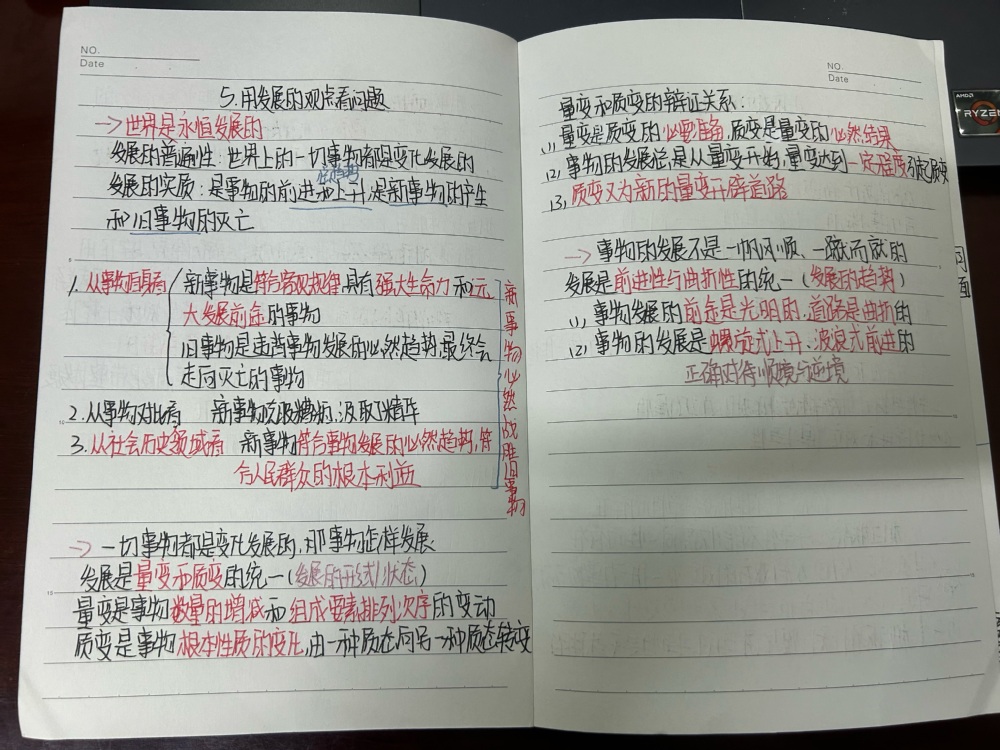 NO.
Date
5.用发展的观点看问题
→世界是永恒发展的
发展的普遍性:世界上的一切事物都是变化发展的
发展的实质:是事物的前进和上升,是新事物的产生
和旧事物的灭亡
1.从事物自身看
新事物是符合客观规律,具有强大生命力和远
大发展前途的事物
旧事物是违背事物发展的必然趋势,最终会
走向灭亡的事物
2.从事物对比看 新事物克服糟粕,汲取精华
3.从社会历史领域看 新事物符合事物发展的必然趋势,符
合人民群众的根本利益
新事物必然战胜旧事物
→一切事物都是变化发展的,那事物怎样发展:
发展是量变和质变的统一(发展的形式/状态)
量变是事物数量的增减和组成要素排列次序的变动
质变是事物根本性质的变化,由一种质态向另一种质态转变
NO.
Date
量变和质变的辩证关系:
(1)量变是质变的必要准备,质变是量变的必然结果
(2)事物的发展总是从量变开始,量变达到一定程度引起质变
(3)质变又为新的量变开辟道路
→事物的发展不是一帆风顺、一蹴而就的
发展是前进性与曲折性的统一(发展的趋势)
(1)事物发展的前途是光明的,道路是曲折的
(2)事物的发展是螺旋式上升、波浪式前进的
正确对待顺境与逆境
AMD
RYZEN